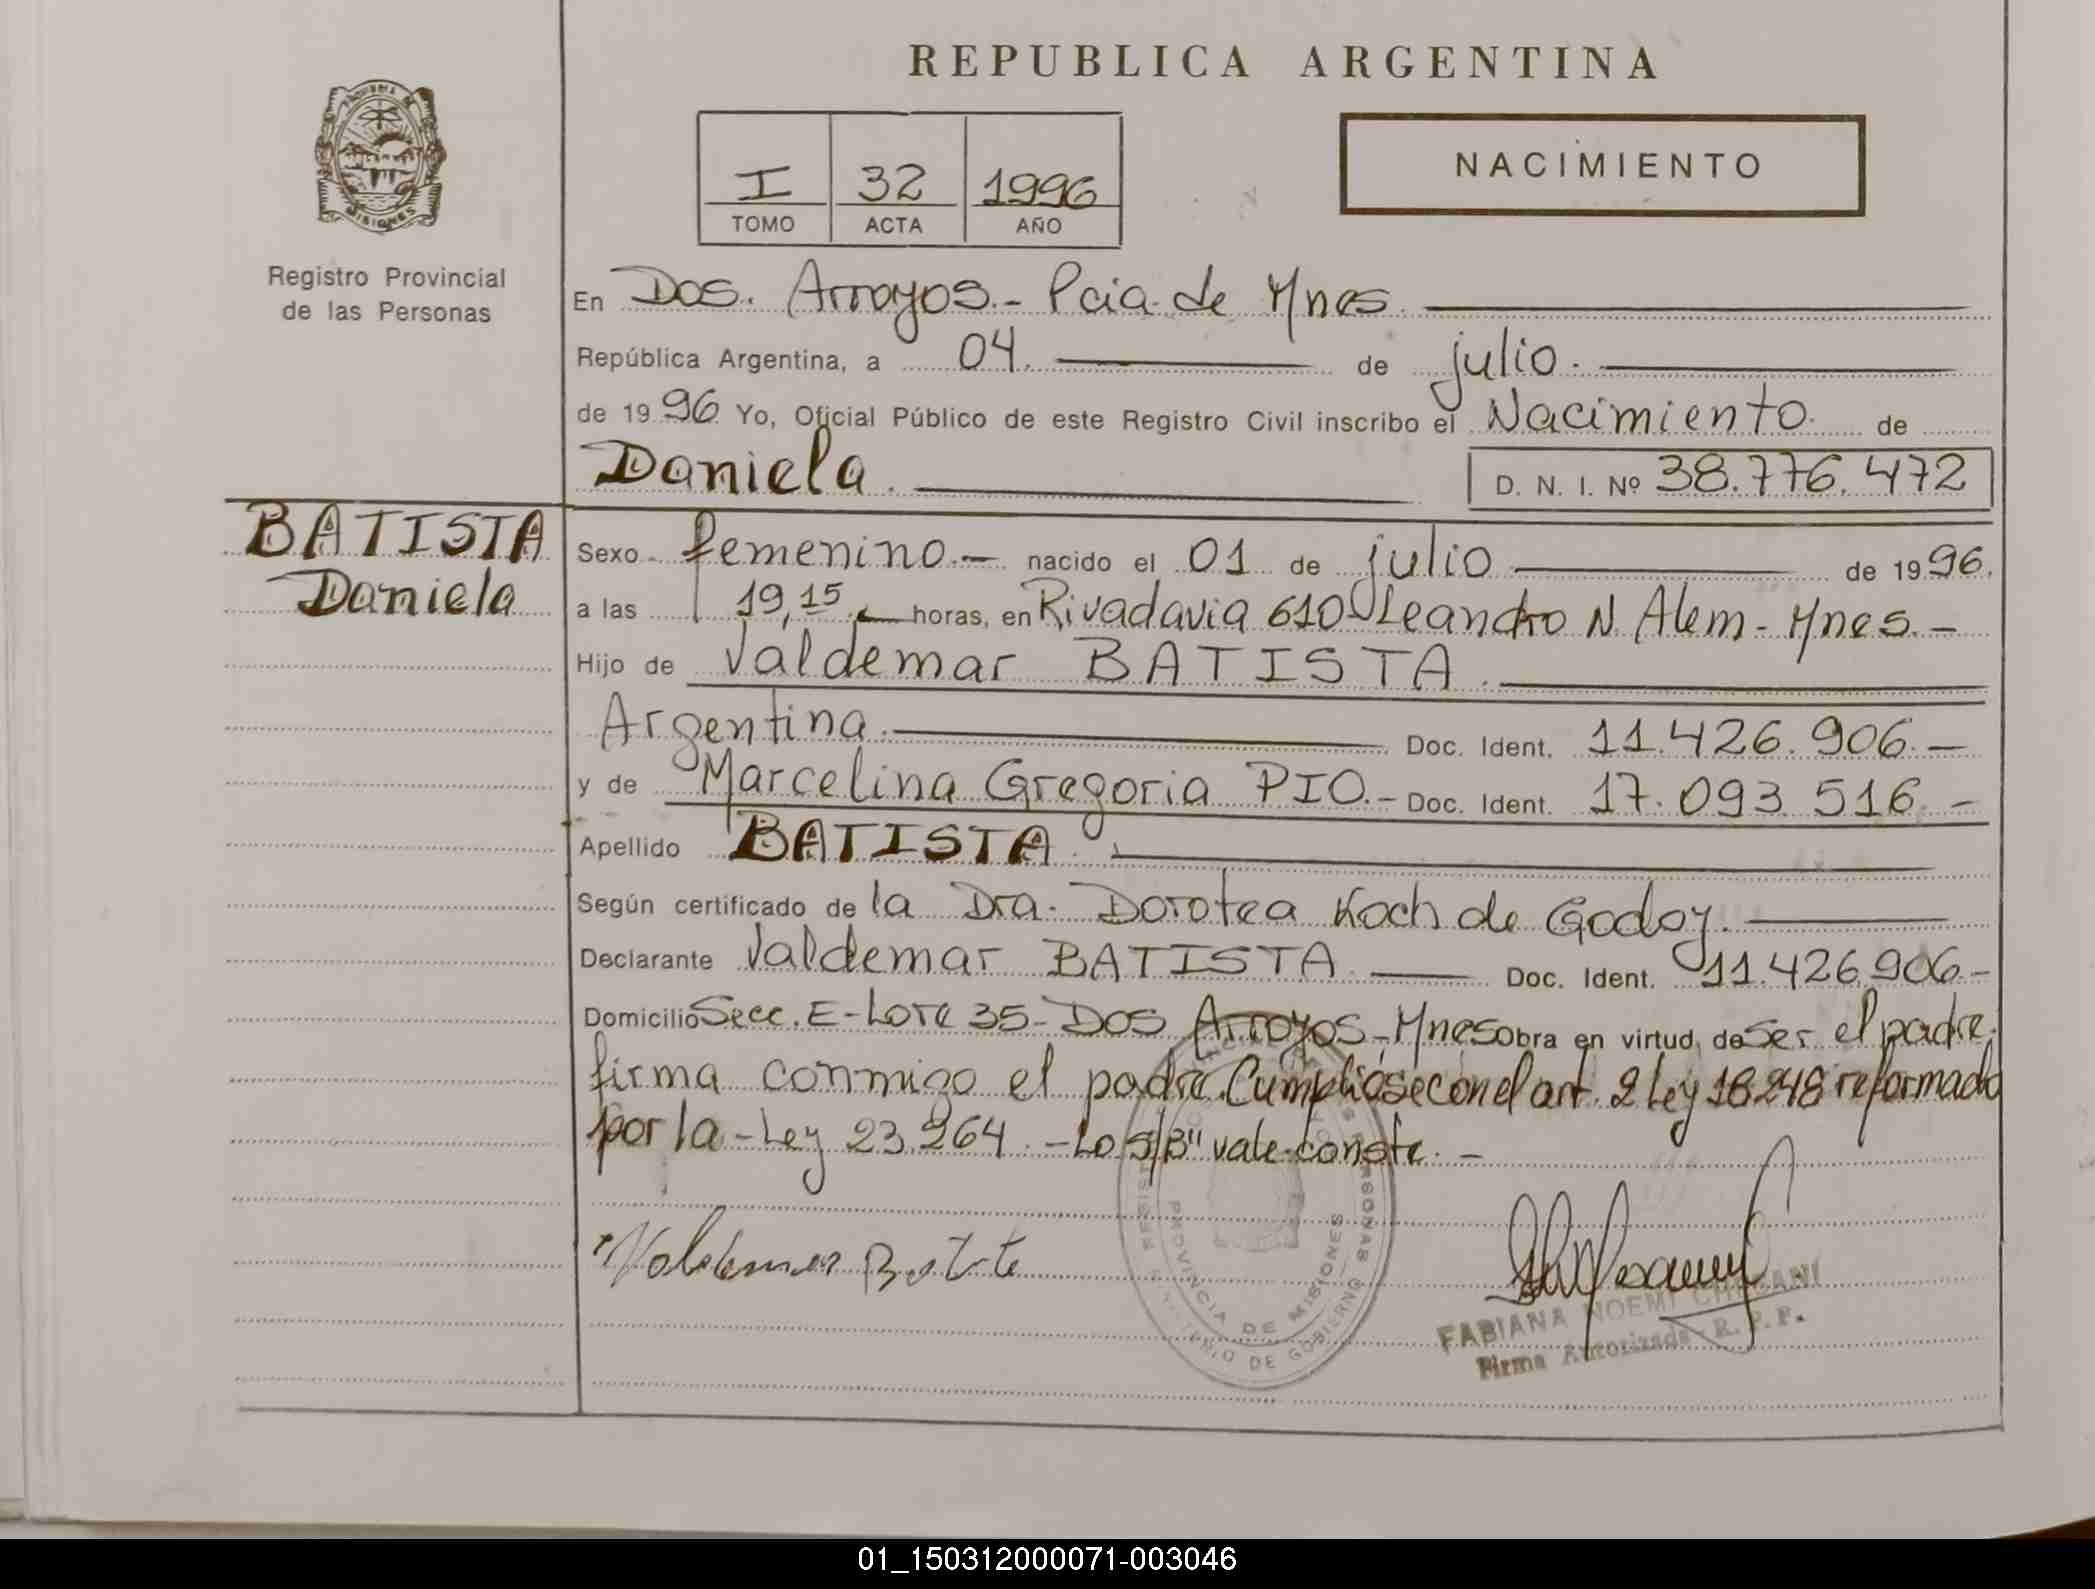 REPUBLICA ARGENTINA
NACIMIENTO
I 32 1996
TOMO ACTA AÑO
MISIONES
Registro Provincial
de las Personas
En Dos Arroyos.- Pcia. de Mnes.
República Argentina, a 04. de julio.
de 1996 Yo, Oficial Público de este Registro Civil inscribo el Nacimiento de
Daniela. D. N. I. Nº 38.776.472
BATISTA
Daniela
Sexo femenino.- nacido el 01 de julio de 1996.
a las 19,15 horas, en Rivadavia 610-Leandro N. Alem- Mnes.-
Hijo de Valdemar BATISTA.
Argentina. Doc. Ident. 11.426.906.-
y de Marcelina Gregoria PIO.- Doc. Ident. 17.093.516.-
Apellido BATISTA.
Según certificado de la Dra. Dorotea Koch de Godoy.
Declarante Valdemar BATISTA Doc. Ident. 11.426.906-
Domicilio Secc. E-Lote 35-Dos Arroyos-Mnes obra en virtud de ser el padre.
firma conmigo el padre. Cumpliose con el art. 2 Ley 18.248 reformado
por la -Ley 23.264.-Lo S/B" vale conste.-
Valdemar Batista
PROVINCIA DE MISIONES
MINISTERIO DE GOBIERNO
FABIANA NOEMI
Firma Autorizada R. P. P.
01_150312000071-003046